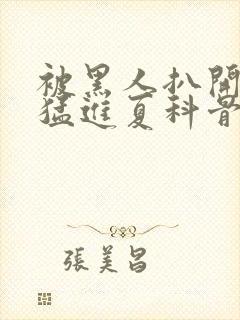 被黑人扒開
猛進夏科骨
張美昌